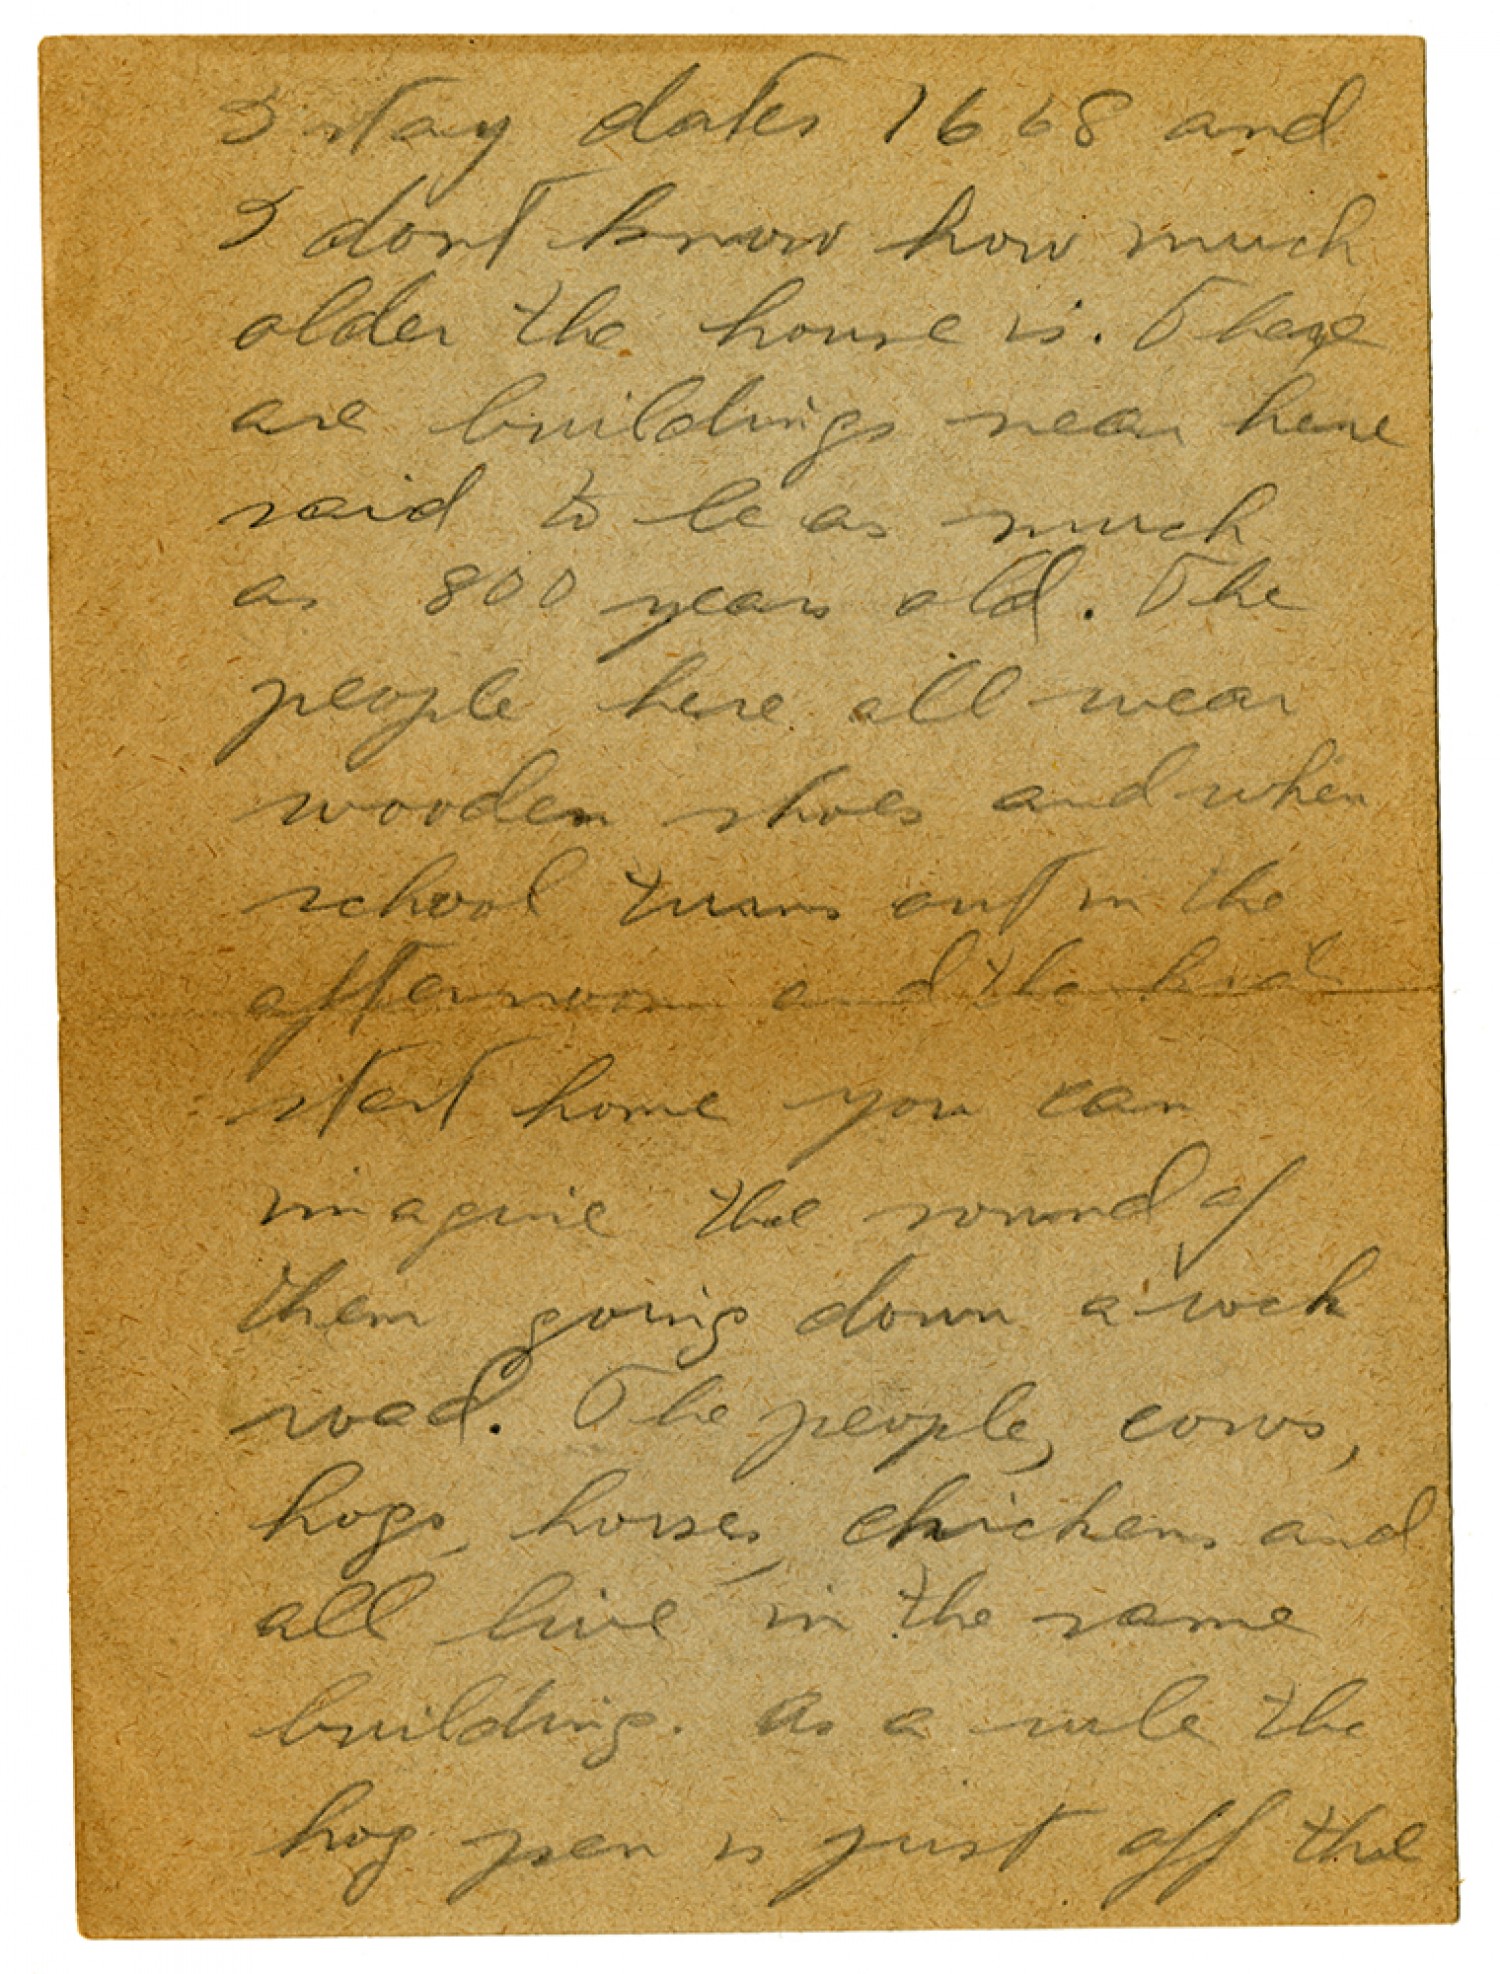 I stay dates 1668 and
I dont know how much
older the house is. There
are buildings near here
said to be as much
as 800 years old. The
people here all wear
wooden shoes and when
school turns out in the
afternoon and the kids
start home you can
imagine the sound of
them going down a rock
road. The people, cows,
hogs, horses, chickens and
all live in the same
building. As a rule the
hog pen is just off the